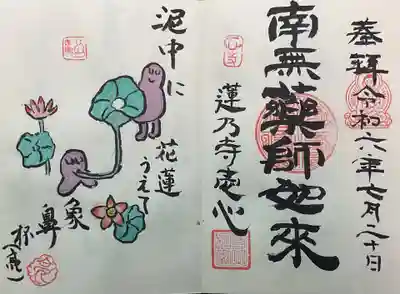 奉拝 令和六年七月二十日
南無藥師如來
蓮乃寺
泥中に
花蓮
うえて
象
鼻
杯